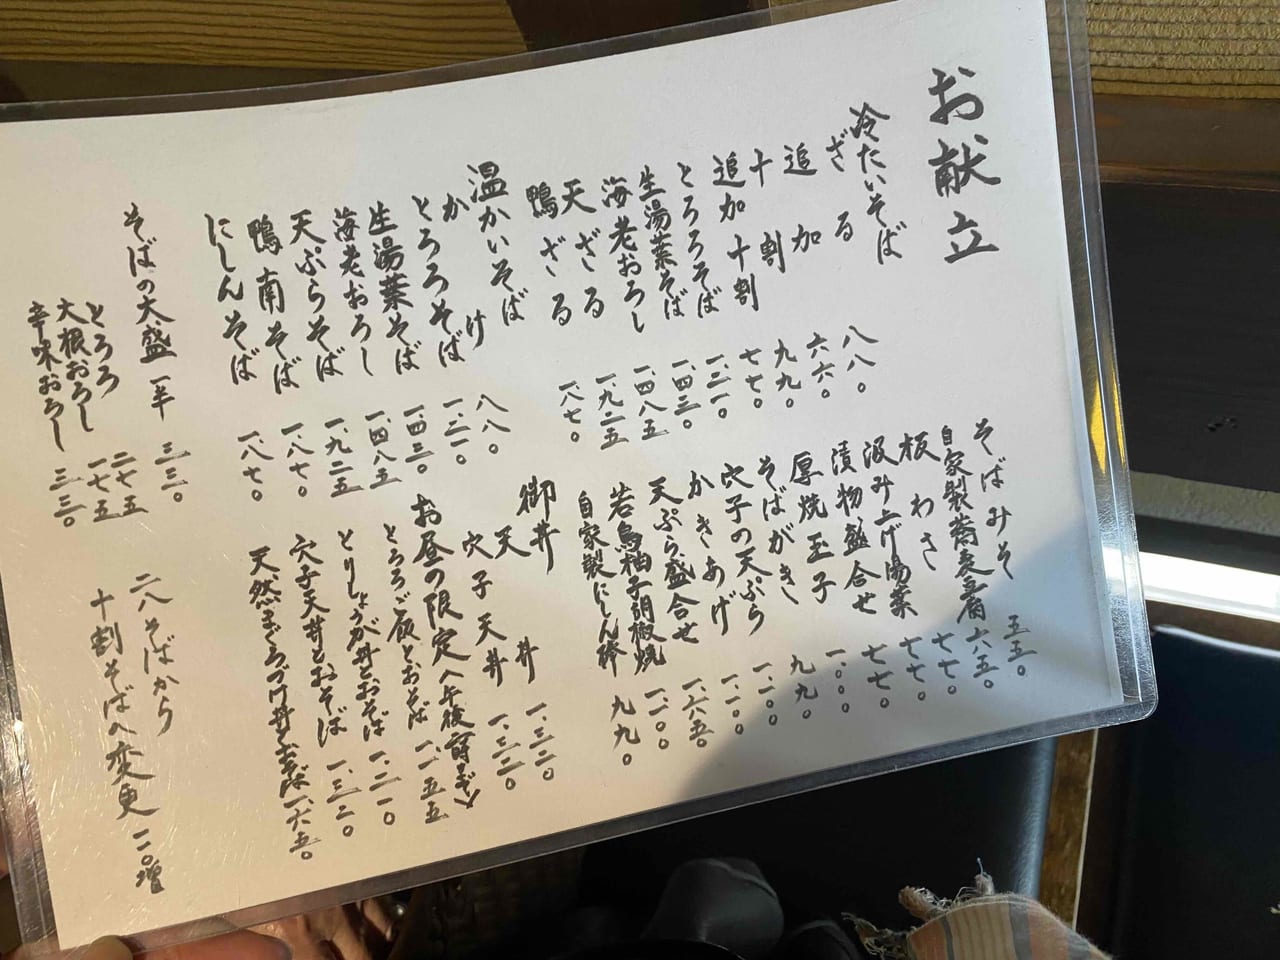 お献立
冷たいそば
ざる 八八〇
追加 六六〇
十割 九九〇
追加十割 七七〇
とろろそば 一、二一〇
生湯葉そば 一、四三〇
海老おろし 一、四八五
天ざる 一、九二五
鴨ざる 一、八七〇
温かいそば
かけ 八八〇
とろろそば 一、二一〇
生湯葉そば 一、四三〇
海老おろし 一、四八五
天ぷらそば 一、九二五
鴨南そば 一、八七〇
にしんそば 一、八七〇
そばの大盛 一半 三三〇
とろろ 二七五
大根おろし 一七五
辛味おろし 三三〇
そばみそ 五五〇
自家製蕎麦豆腐 六五〇
板わさ 七七〇
汲み上げ湯葉 七七〇
漬物盛合せ 七七〇
厚焼玉子 一、〇〇〇
そばがき 九九〇
穴子の天ぷら 一、一〇〇
かきあげ 一、一〇〇
天ぷら盛合せ 一、六五〇
若鳥柚子胡椒焼 一、一〇〇
自家製にしん棒 九九〇
御丼
天丼 一、三二〇
穴子天丼 一、三二〇
お昼の限定〈午後
とろろご飯とおそば 一、一五五
とりしょうが丼とおそば 一、二一〇
穴子天丼とおそば 一、三二〇
天然まぐろづけ丼とおそば 一、六五〇
二八そばから
十割そばへ変更 一一〇増